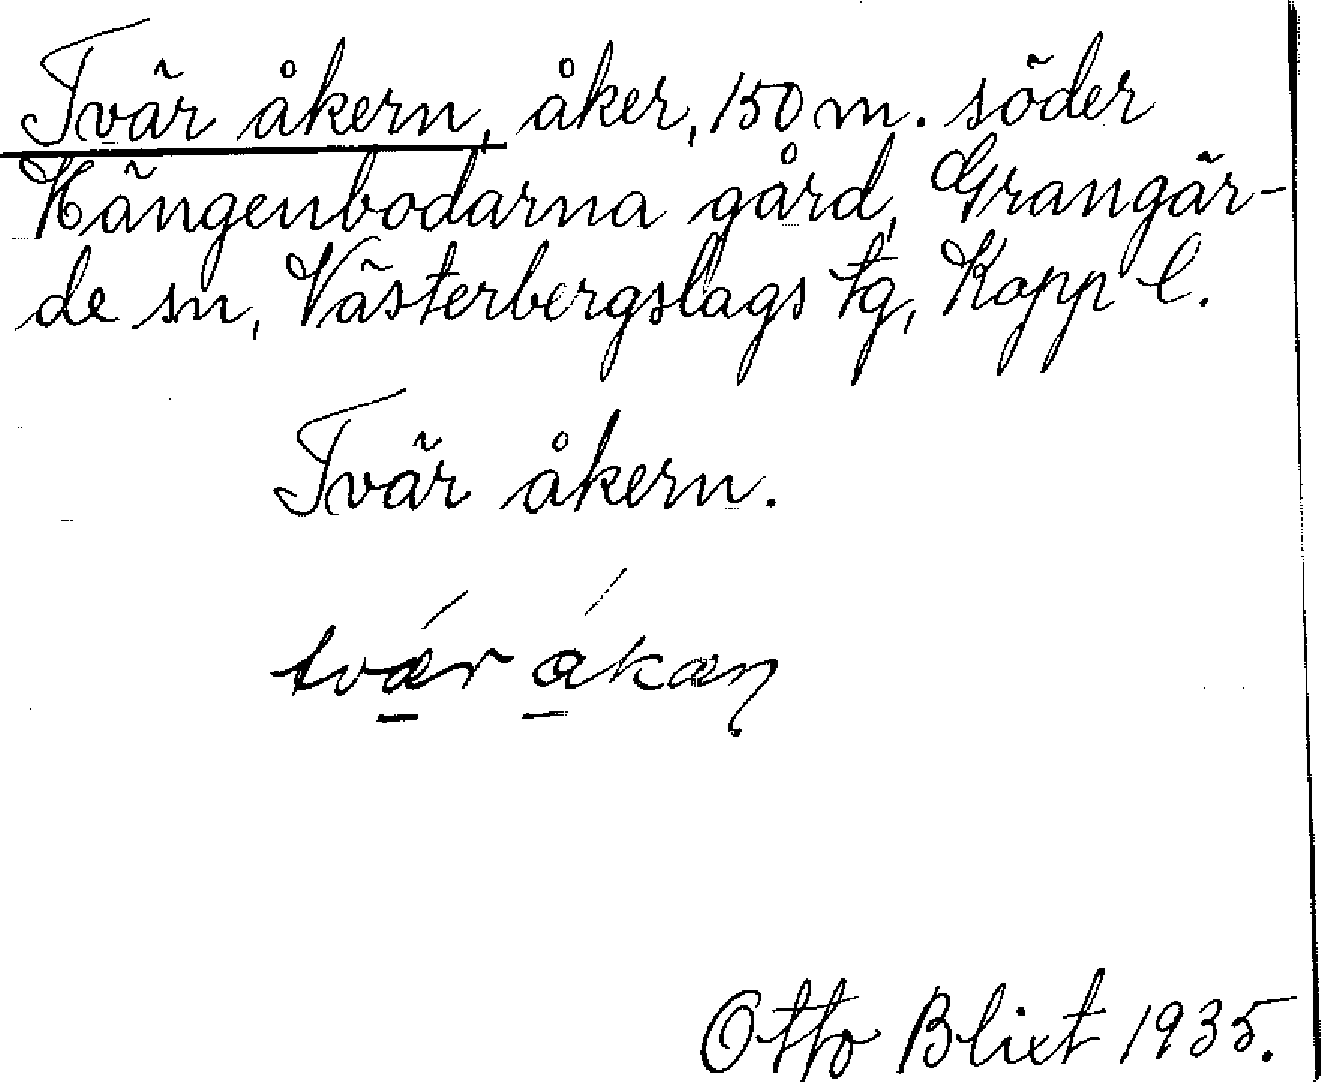 Tvär åkern, åker, 150 m. söder
Hängenbodarna gård, Grangär-
de sn, Västerbergslags tg, Kopp l.
Tvär åkern.
tvǽr ákæn
Otto Blixt 1935.